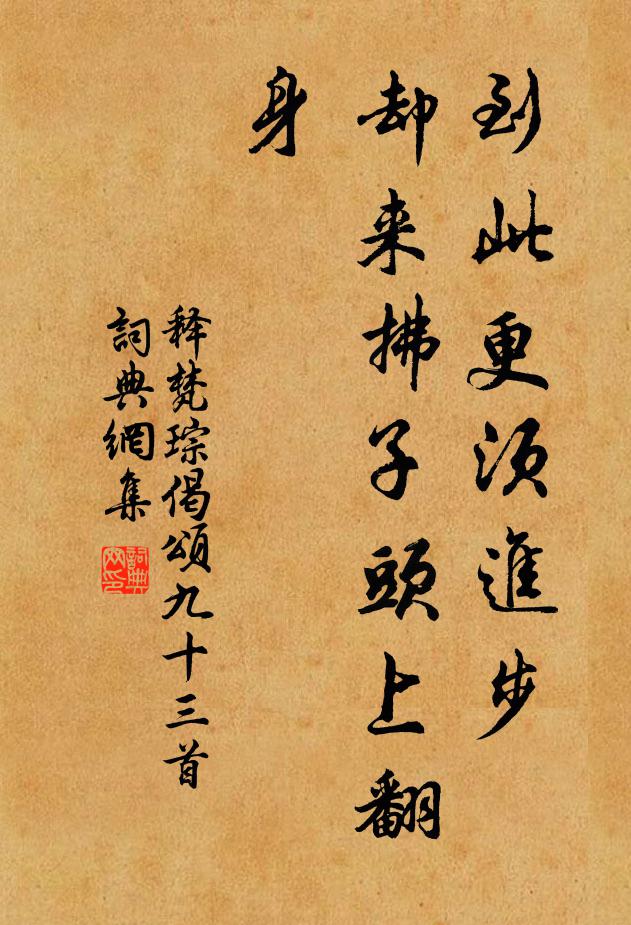 到此更須進步
却来拂子頭上翻
身
释梵琮偈頌九十三首
詞典網集
詞典网印